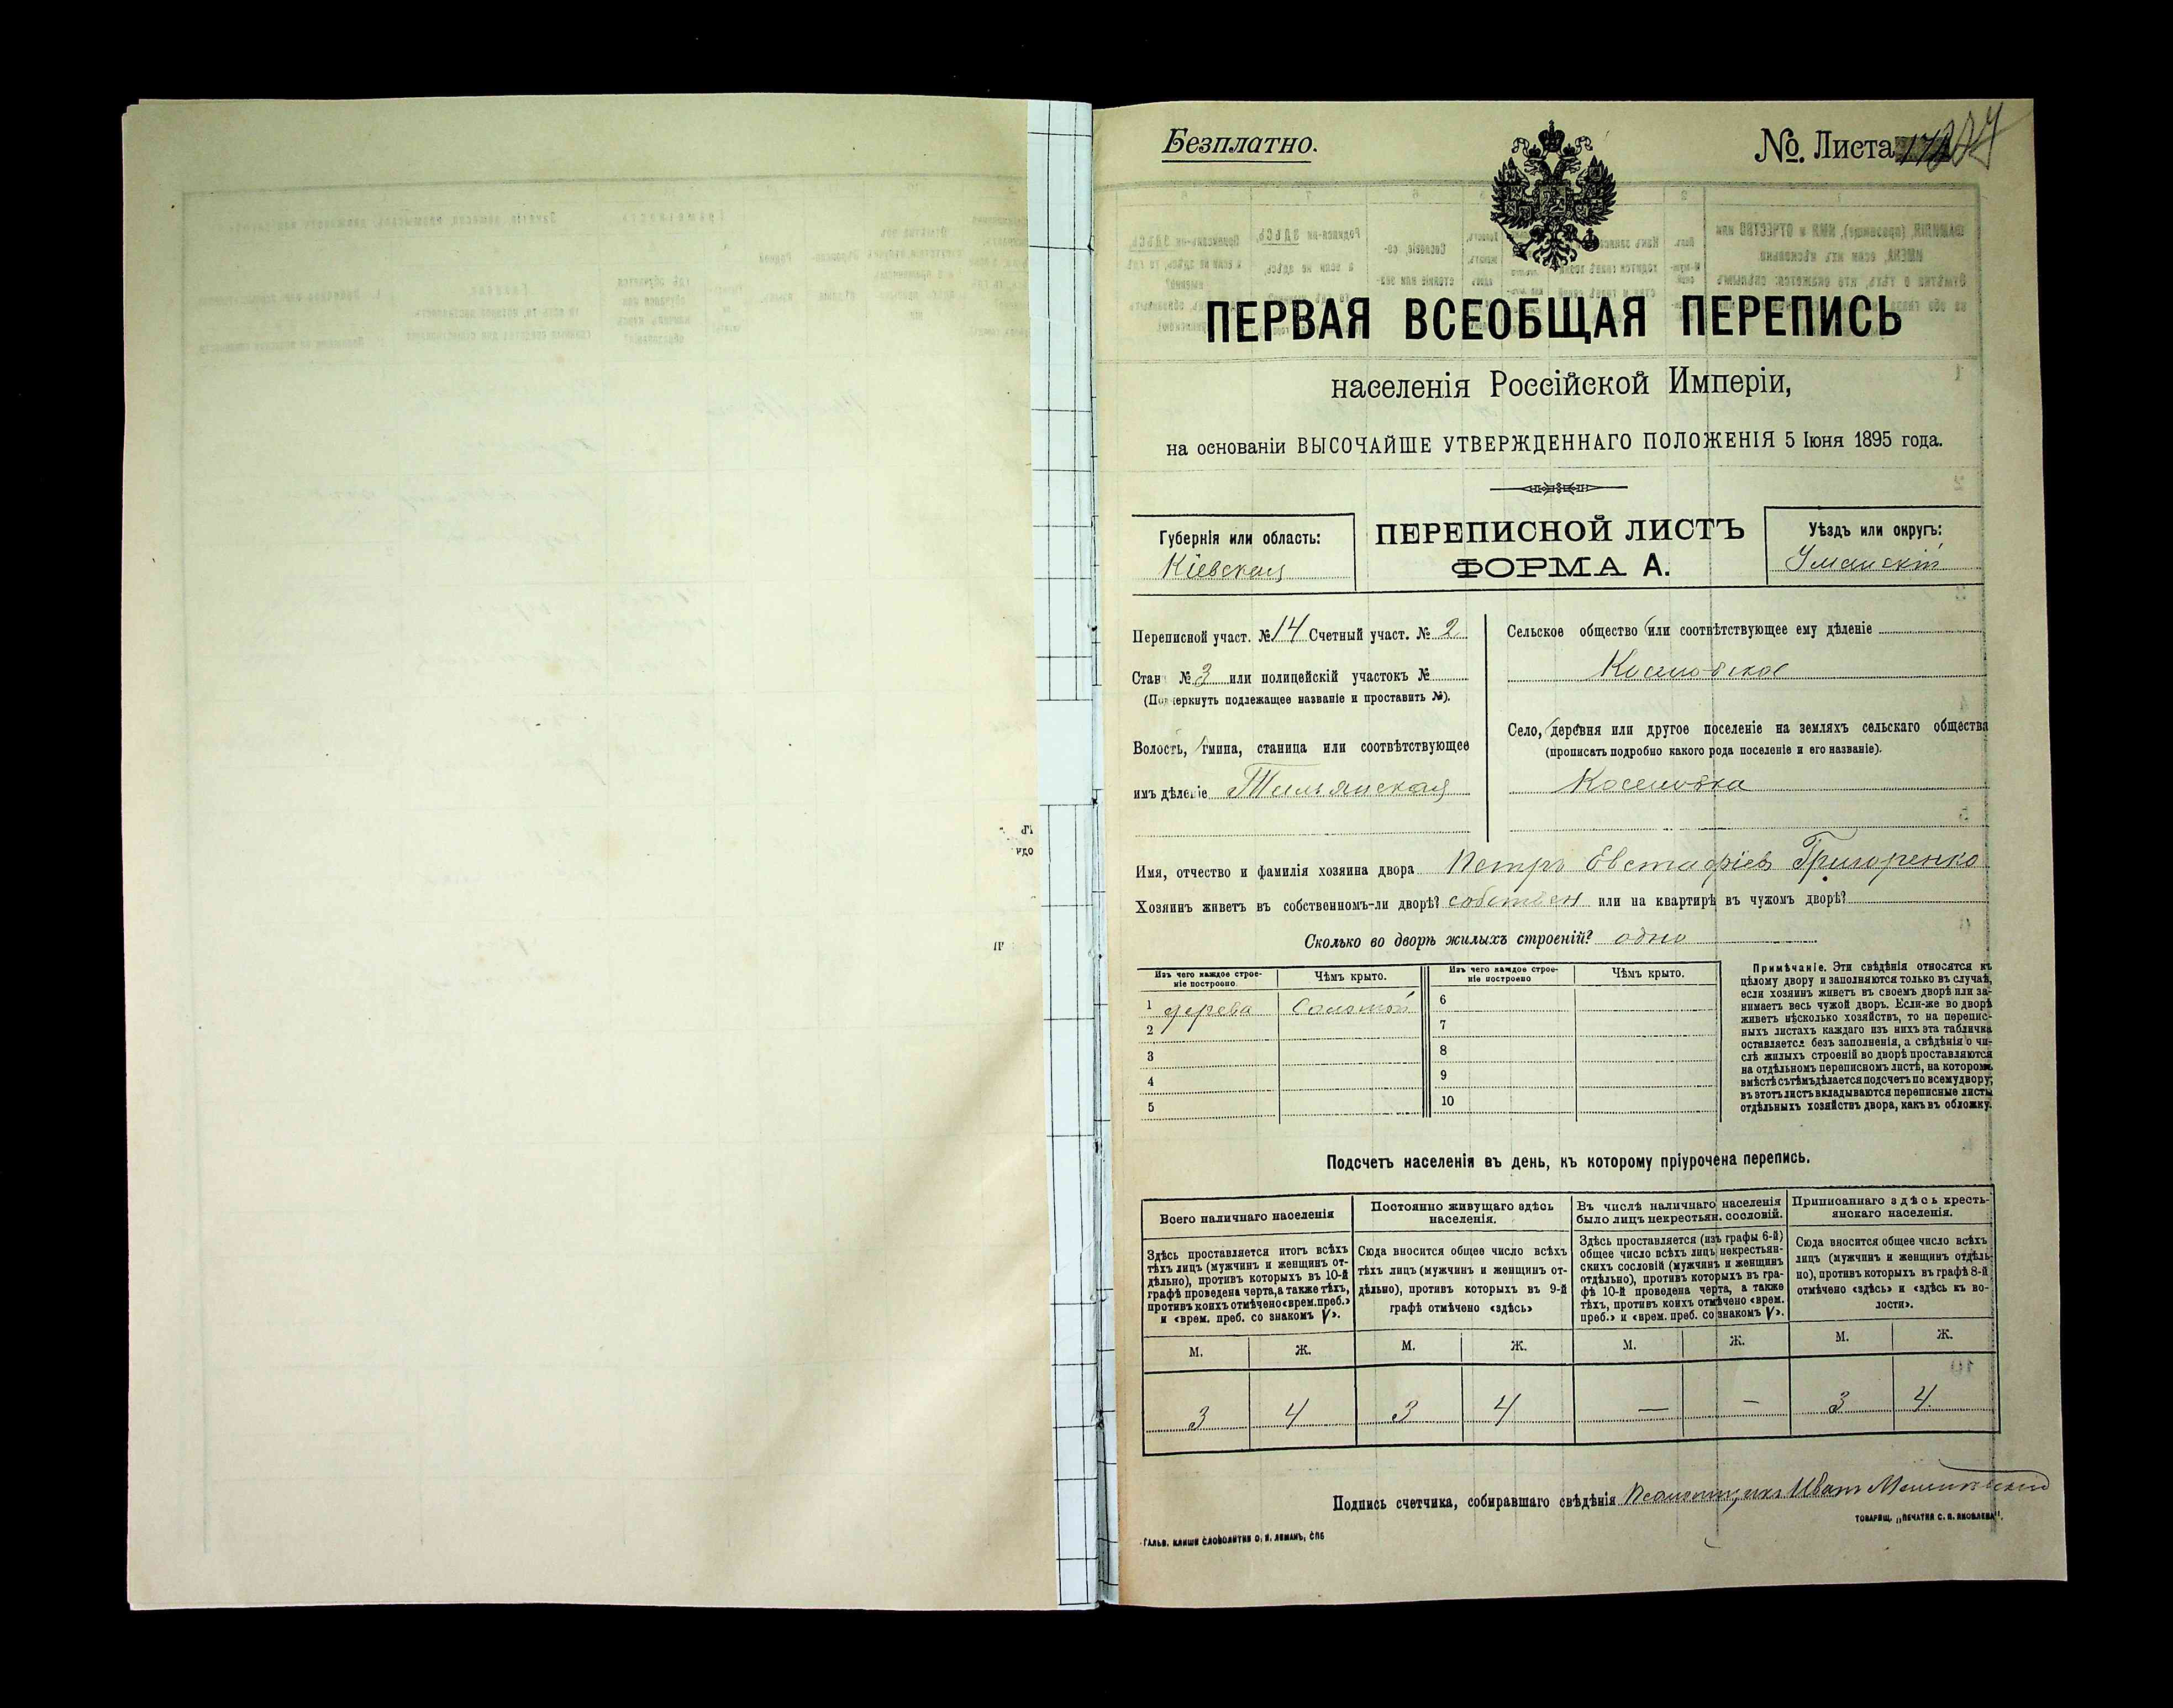 Безплатно.
№. Листа
ПЕРВАЯ ВСЕОБЩАЯ ПЕРЕПИСЬ
населенія Россійской Имперіи,
на основаніи ВЫСОЧАЙШЕ УТВЕРЖДЕННАГО ПОЛОЖЕНІЯ 5 Іюня 1895 года.
Губернія или область:
Кіевская
ПЕРЕПИСНОЙ ЛИСТЪ
ФОРМА А.
Уѣздъ или округъ:
Уманскій
Переписной участ. № 14 Счетный участ. № 2
Стан № 3 или полицейскій участокъ №
(Подчеркнуть подлежащее названіе и проставить №).
Волость, гмина, станица или соотвѣтствующее
имъ дѣленіе
Сельское общество или соотвѣтствующее ему дѣленіе
Село, деревня или другое поселеніе на земляхъ сельскаго общества
(прописать подробно какого рода поселеніе и его названіе).
Имя, отчество и фамилія хозяина двора Петръ Евстафіев Григоренко
Хозяинъ живетъ въ собственномъ-ли дворѣ? собствен или на квартирѣ въ чужомъ дворѣ?
Сколько во дворѣ жилыхъ строеній? одно
Изъ чего каждое строе-
ніе построено
Чѣмъ крыто.
Изъ чего каждое строе-
ніе построено
Чѣмъ крыто.
1 дерева Соломой
2
3
4
5
6
7
8
9
10
Примѣчаніе. Эти свѣдѣнія относятся къ
цѣлому двору и заполняются только въ случаѣ,
если хозяинъ живетъ въ своемъ дворѣ или за-
нимаетъ весь чужой дворъ. Если-же во дворѣ
живетъ нѣсколько хозяйствъ, то на перепис-
ныхъ листахъ каждаго изъ нихъ эта табличка
оставляется безъ заполненія, а свѣдѣнія о чи-
слѣ жилыхъ строеній во дворѣ проставляются
на отдѣльномъ переписномъ листѣ, на которомъ
вмѣстѣ съ тѣмъ дѣлается подсчетъ по всему двору;
въ этотъ листъ вкладываются переписные листы
отдѣльныхъ хозяйствъ двора, какъ въ обложку.
Подсчетъ населенія въ день, къ которому пріурочена перепись.
Всего наличнаго населенія
Здѣсь проставляется итогъ всѣхъ
тѣхъ лицъ (мужчинъ и женщинъ от-
дѣльно), противъ которыхъ въ 10-й
графѣ проведена черта, а также тѣхъ,
противъ коихъ отмѣчено «врем. преб.»
и «врем. преб. со знакомъ V».
Постоянно живущаго здѣсь
населенія.
Сюда вносится общее число всѣхъ
тѣхъ лицъ (мужчинъ и женщинъ от-
дѣльно), противъ которыхъ въ 9-й
графѣ отмѣчено «здѣсь»
Въ числѣ наличнаго населенія
было лицъ некрестьян. сословій.
Здѣсь проставляется (изъ графы 6-й)
общее число всѣхъ лицъ некрестьян-
скихъ сословій (мужчинъ и женщинъ
отдѣльно), противъ которыхъ въ гра-
фѣ 10-й проведена черта, а также
тѣхъ, противъ коихъ отмѣчено «врем.
преб.» и «врем. преб. со знакомъ V».
Приписаннаго здѣсь кресть-
янскаго населенія.
Сюда вносится общее число всѣхъ
лицъ (мужчинъ и женщинъ отдѣль-
но), противъ которыхъ въ графѣ 8-й
отмѣчено «здѣсь» и «здѣсь къ во-
лости».
М. Ж. М. Ж. М. Ж. М. Ж.
3 4 3 4 — — 3 4
Подпись счетчика, собиравшаго свѣдѣнія Псаломщикъ Иванъ
ГАЛЬВ. КЛИШЕ СЛОВОЛИТНИ О. И. ЛЕМАНЪ, СПБ
ТОВАРИЩ. „ПЕЧАТНЯ С. П. ЯКОВЛЕВА".